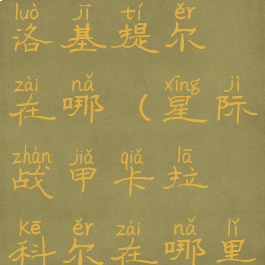 luò jī tí ěr
洛基提尔
zài nǎ xīng jì
在哪（星际
zhàn jiǎ qiǎ lā
战甲卡拉
kē ěr zài nǎ lǐ
科尔在哪里